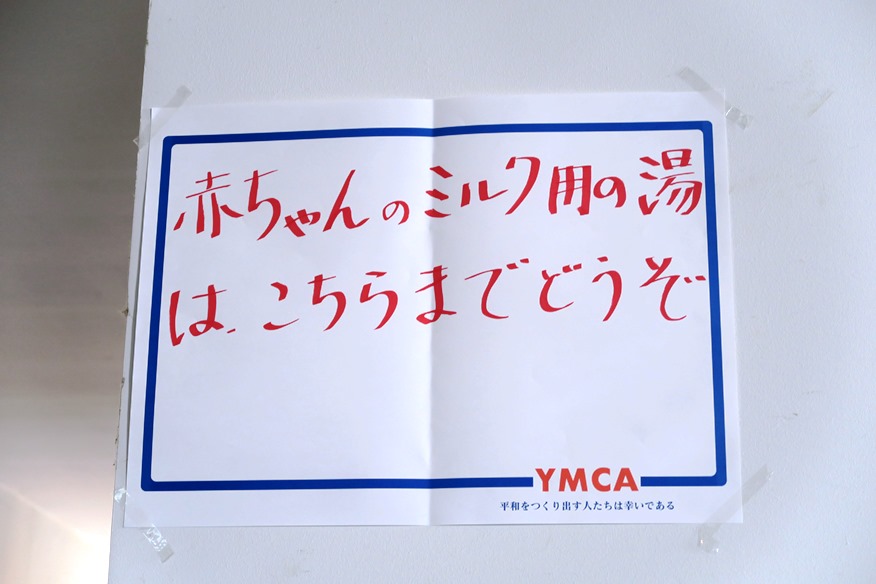 赤ちゃんのミルク用の湯
は、こちらまでどうぞ
YMCA
平和をつくり出す人たちは幸いである